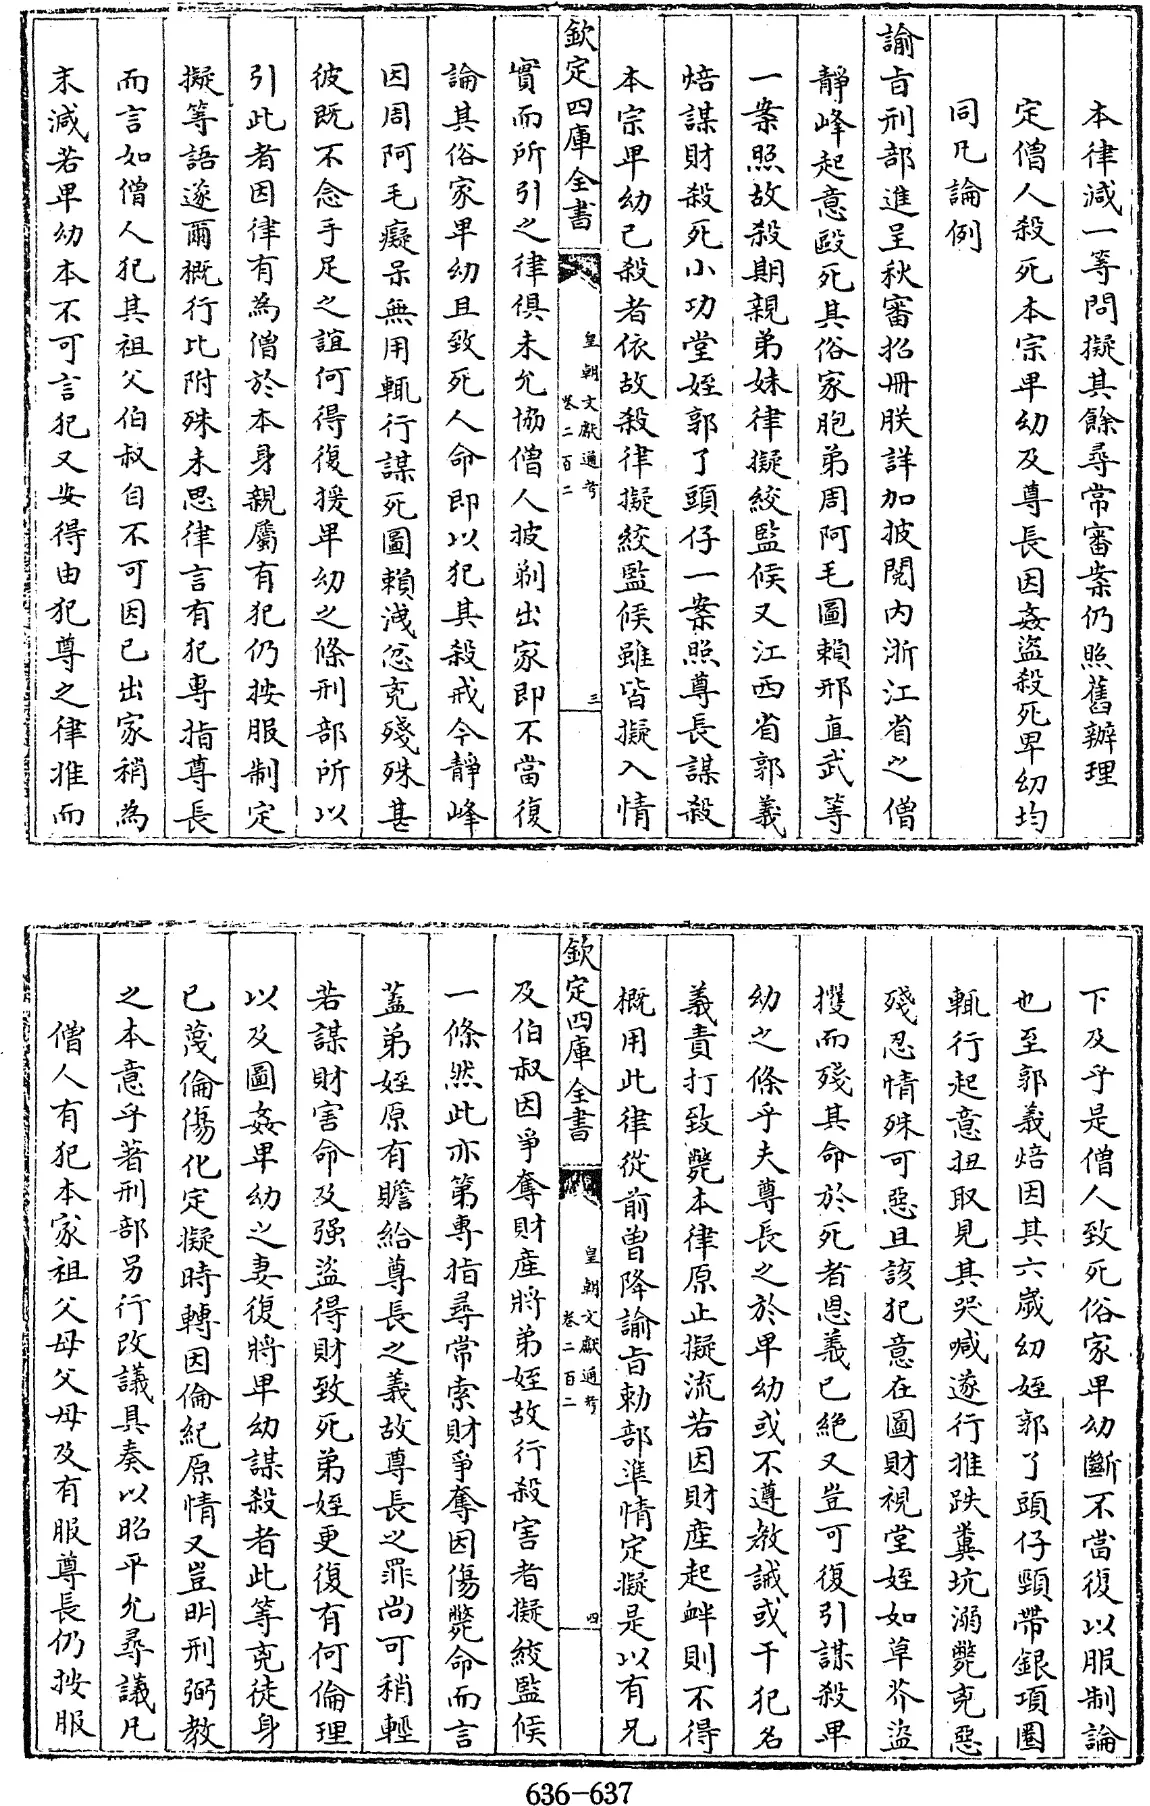 本律減一等問擬其餘尋常審案仍照舊辦理
定僧人殺死本宗卑幼及尊長因姦盜殺死卑幼均
同凡論例
諭旨刑部進呈秋審招冊朕詳加披閱內浙江省之僧
靜峰起意毆死其俗家胞弟周阿毛圖賴邢直武等
一案照故殺期親弟妹律擬絞監候又江西省郭義
焙謀財殺死小功堂姪郭了頭仔一案照尊長謀殺
本宗卑幼已殺者依故殺律擬絞監候雖皆擬入情
欽定四庫全書
皇朝文獻通考
卷二百二
三
實而所引之律俱未允協僧人披剃出家即不當復
論其俗家卑幼且致死人命即以犯其殺戒今靜峰
因周阿毛癡呆無用輒行謀死圖賴洩忿兇殘殊甚
彼既不念手足之誼何得復援卑幼之條刑部所以
引此者因律有為僧於本身親屬有犯仍按服制定
擬等語遂爾概行比附殊未思律言有犯專指尊長
而言如僧人犯其祖父伯叔自不可因已出家稍為
末減若卑幼本不可言犯又安得由犯尊之律推而
下及乎是僧人致死俗家卑幼斷不當復以服制論
也至郭義焙因其六歲幼姪郭了頭仔頸帶銀項圈
輒行起意扭取見其哭喊遂行推跌糞坑溺斃兇惡
殘忍情殊可惡且該犯意在圖財視堂姪如草芥盜
攫而殘其命於死者恩義已絕又豈可復引謀殺卑
幼之條乎夫尊長之於卑幼或不遵教誡或干犯名
義責打致斃本律原止擬流若因財產起衅則不得
概用此律從前曾降諭旨勅部準情定擬是以有兄
欽定四庫全書
皇朝文獻通考
卷二百二
四
及伯叔因爭奪財產將弟姪故行殺害者擬絞監候
一條然此亦第專指尋常索財爭奪因傷斃命而言
蓋弟姪原有贍給尊長之義故尊長之罪尚可稍輕
若謀財害命及强盜得財致死弟姪更復有何倫理
以及圖姦卑幼之妻復將卑幼謀殺者此等兇徒身
已蔑倫傷化定擬時轉因倫紀原情又豈明刑弼教
之本意乎著刑部另行改議具奏以昭平允尋議凡
僧人有犯本家祖父母父母及有服尊長仍按服
636-637